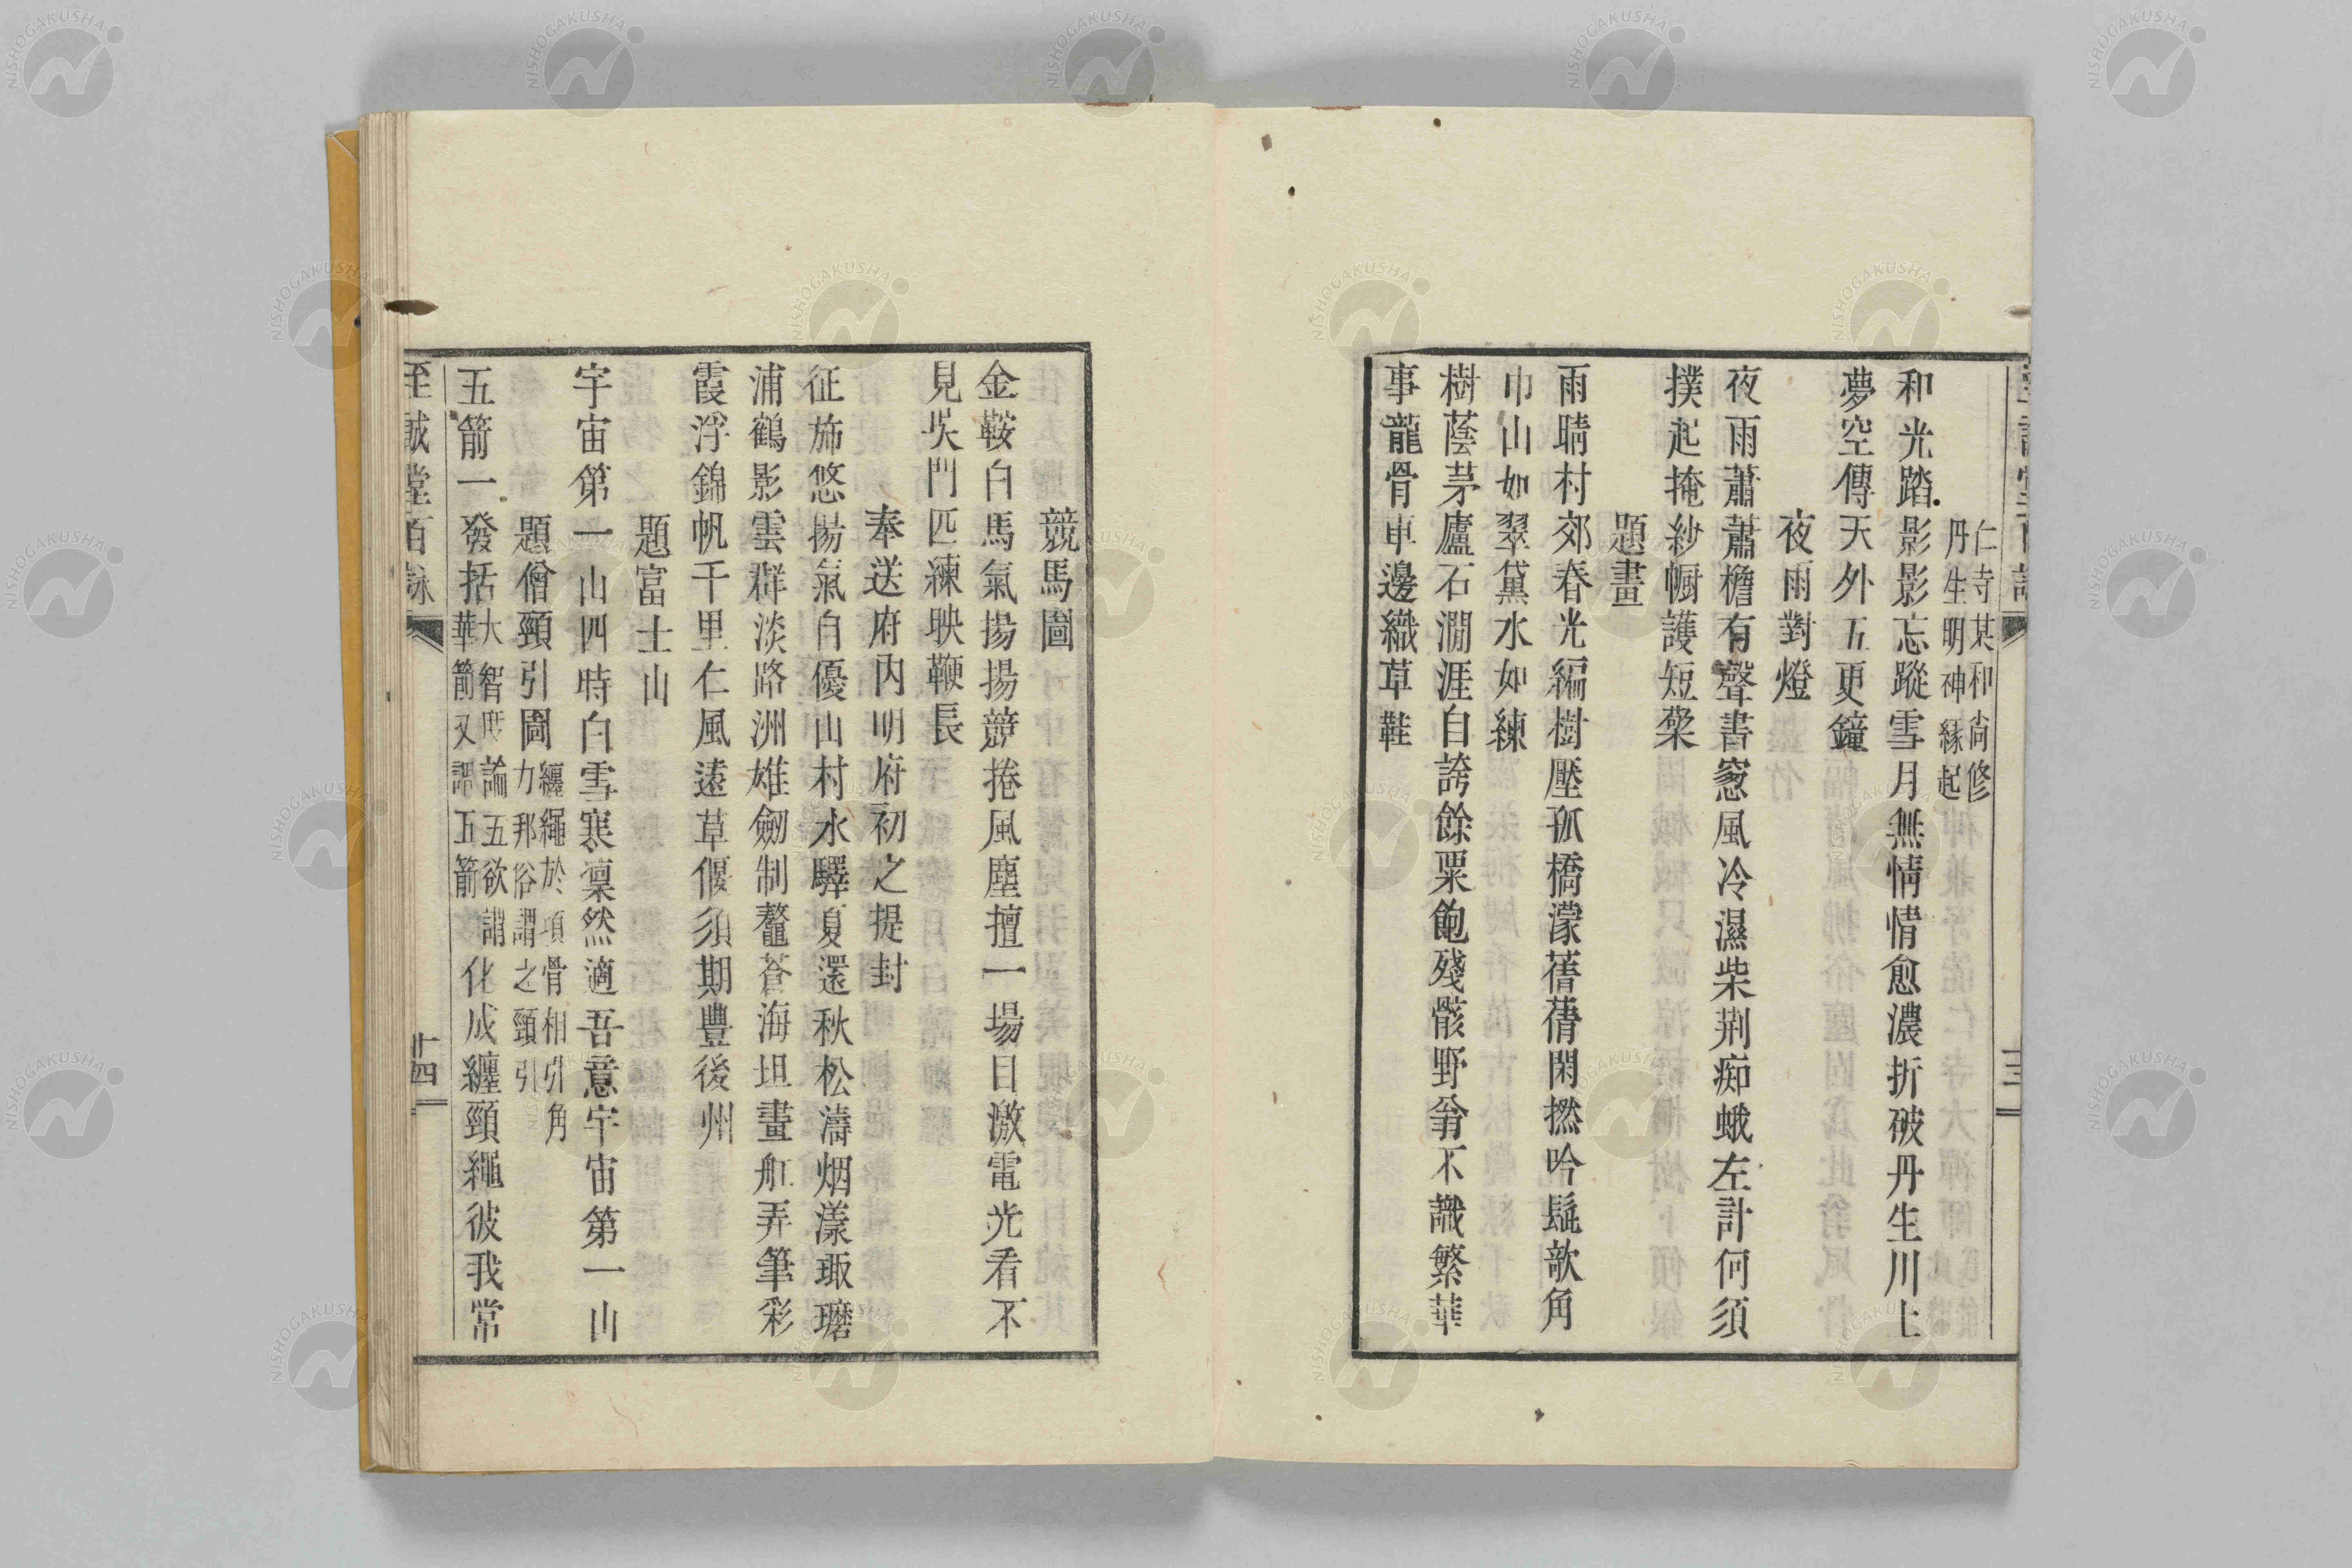 仁寺某和尚修
丹生明神縁起
和光踏影影忘蹤雪月無情情愈濃折破丹生川上
夢空傳天外五更鐘
夜雨對燈
夜雨蕭蕭檐有聲書窓風冷濕柴荆痴蛾左計何須
撲起掩紗幮護短檠
題畫
雨晴村郊春光編樹壓孤橋濛蒨蒨閑撚吟髭歌角
巾山如翠黛水如練
樹蔭茅廬石澗涯自誇餘粟飽殘骸野翁不識繁華
事龍骨車邊織草鞋
競馬圖
金鞍白馬氣揚揚競捲風塵擅一場目激電光看不
見吳門匹練映鞭長
奉送府内明府初之提封
征旆悠揚氣自優山村水驛夏還秋松濤烟漾瑌瓐
浦鶴影雲群淡路洲雄劒制鼇蒼海坦畫舡弄筆彩
霞浮錦帆千里仁風遠草偃須期豐後州
題富士山
宇宙第一山四時白雪寒凛然適吾意宇宙第一山
題僧頸引圖
纏繩於項骨相引角
力邦俗謂之頸引
五箭一發括
大智度論五欲謂
華箭又謂五箭
化成纏頸繩彼我常
至誠堂百詠
十四